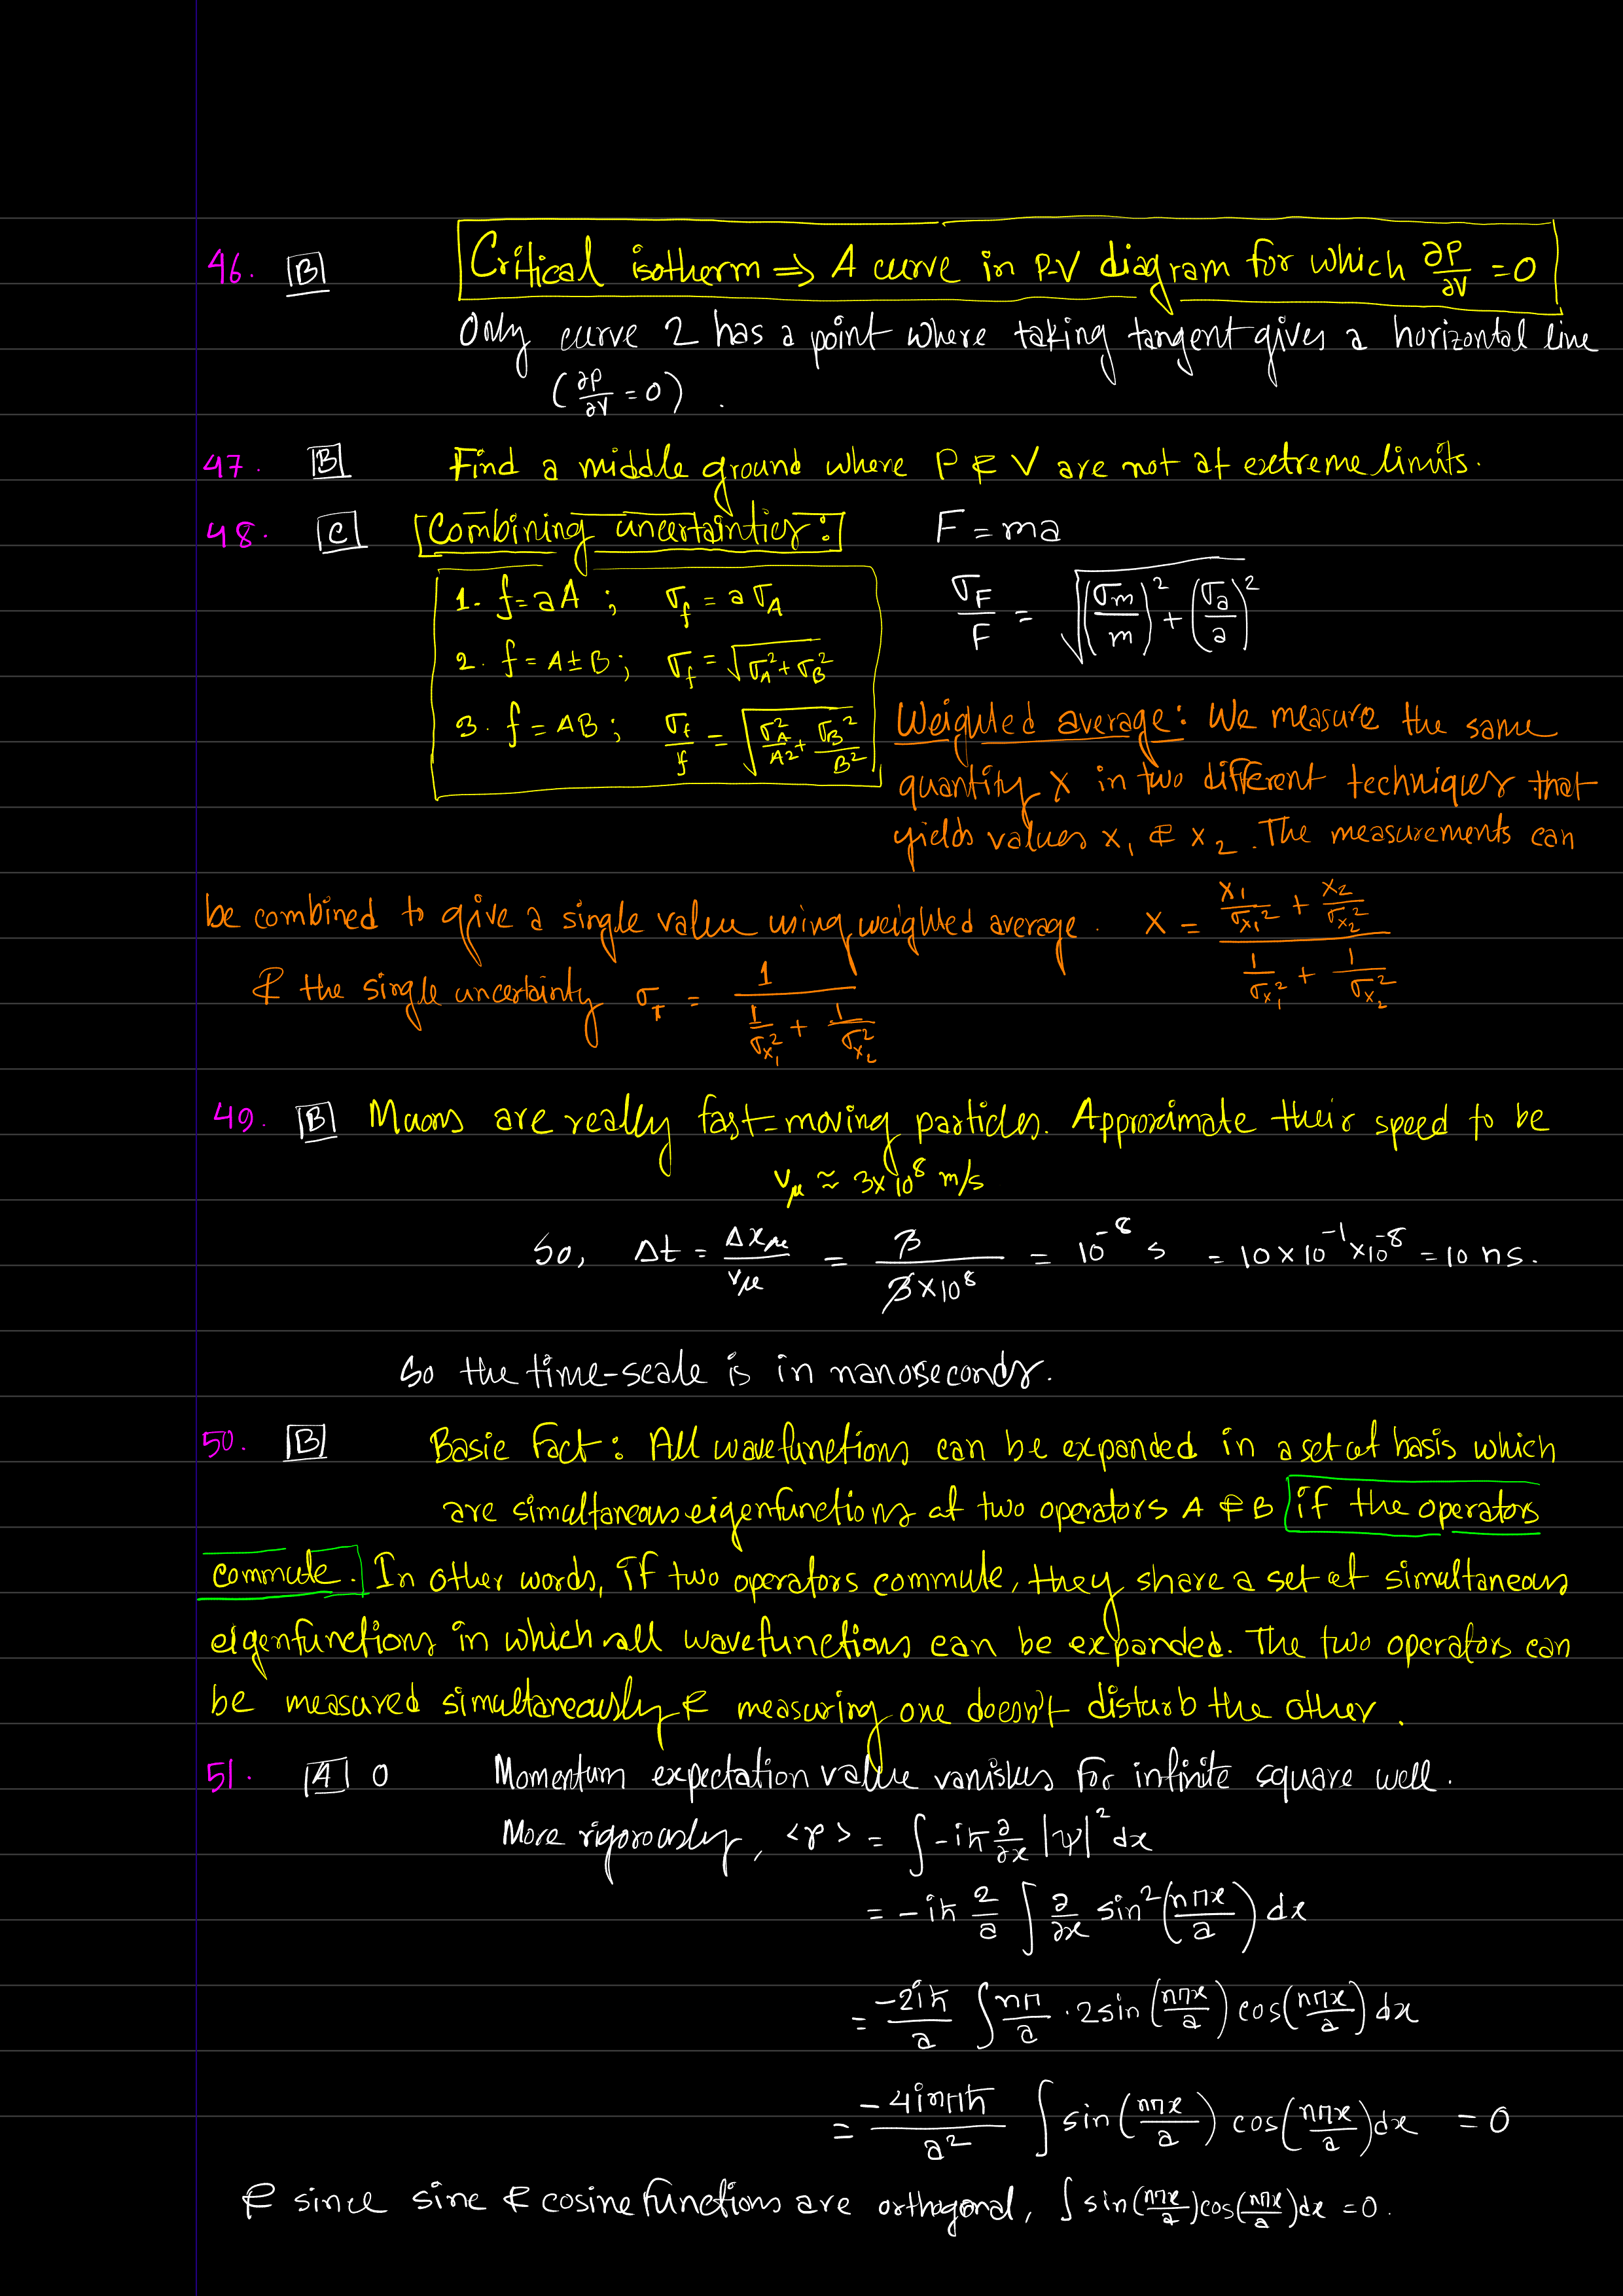 46. B Critical isotherm ⇒ A curve in P-V diagram for which ∂P/∂V = 0
Only curve 2 has a point where taking tangent gives a horizontal line
(∂P/∂V = 0).
47. B Find a middle ground where P & V are not at extreme limits.
48. C Combining uncertainties: F = ma
1. f = aA ; σ_f = a σ_A
σ_F/F = √((σ_m/m)² + (σ_a/a)²)
2. f = A ± B ; σ_f = √(σ_A² + σ_B²)
3. f = AB ; σ_f/f = √(σ_A²/A² + σ_B²/B²)
Weighted average: We measure the same
quantity X in two different techniques that
yields values x₁ & x₂. The measurements can
be combined to give a single value using weighted average. X = (x₁/σ_x₁² + x₂/σ_x₂²)/(1/σ_x₁² + 1/σ_x₂²)
& the single uncertainty σ_T = 1/(1/σ_x₁² + 1/σ_x₂²)
49. B Muons are really fast-moving particles. Approximate their speed to be
v_μ ≈ 3×10⁸ m/s
So, Δt = Δx_μ/v_μ = 3/(3×10⁸) = 10⁻⁸ s = 10×10⁻¹×10⁻⁸ = 10 ns.
So the time-scale is in nanoseconds.
50. B Basic fact: All wavefunctions can be expanded in a set of basis which
are simultaneous eigenfunctions of two operators A & B if the operators
commute. In other words, if two operators commute, they share a set of simultaneous
eigenfunctions in which all wavefunctions can be expanded. The two operators can
be measured simultaneously & measuring one doesn't disturb the other.
51. A 0 Momentum expectation value vanishes for infinite square well.
More rigorously, <p> = ∫ -iħ ∂/∂x |ψ|² dx
= -iħ 2/a ∫ ∂/∂x sin²(nπx/a) dx
= -2iħ/a ∫ nπ/a · 2 sin(nπx/a) cos(nπx/a) dx
= -4inπħ/a² ∫ sin(nπx/a) cos(nπx/a) dx = 0
& since sine & cosine functions are orthogonal, ∫ sin(nπx/a) cos(nπx/a) dx = 0.